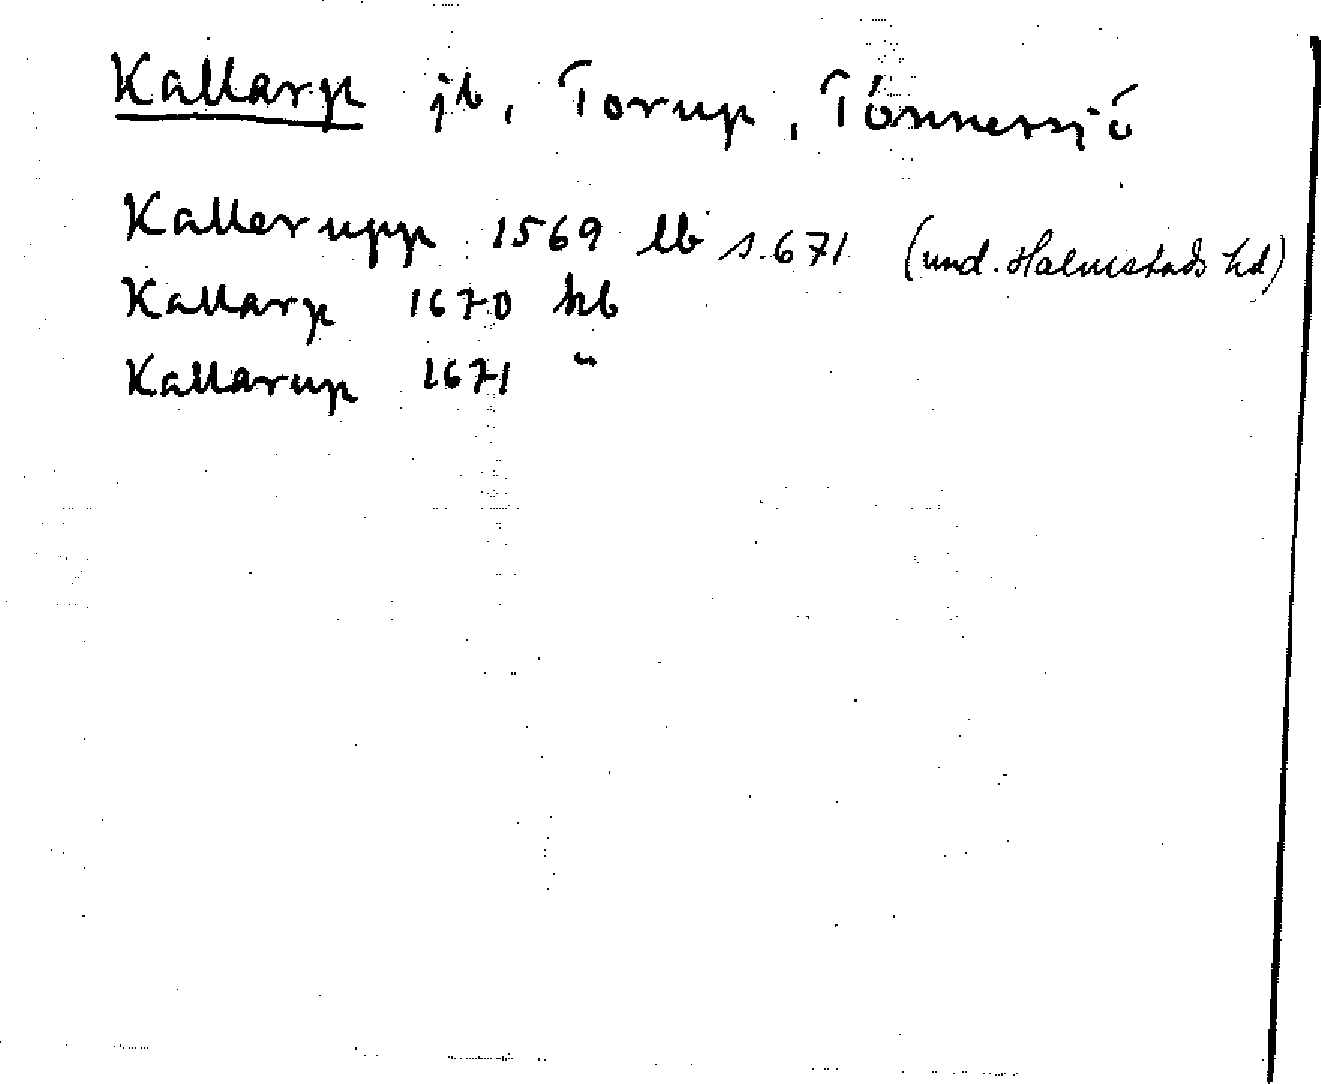 Kallarp jb, Torup, Tönnersjö
Kallerupp 1569 lb s. 671 (und. Halmstads hd)
Kallarp 1670 hb
Kallarup 1671 "